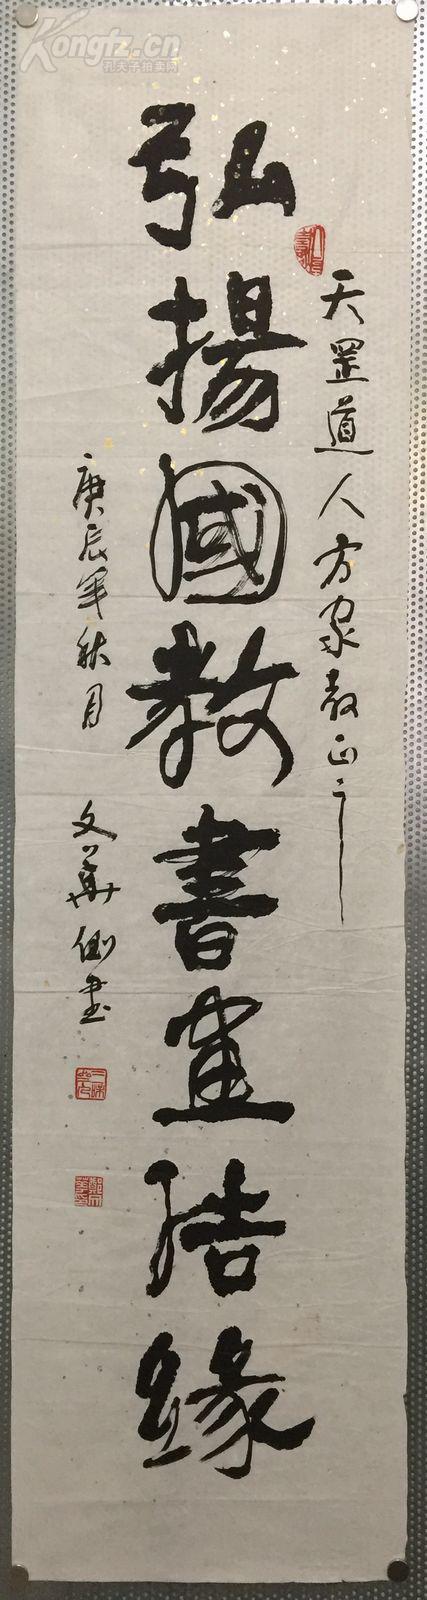 Kongfz.cn
孔夫子拍卖网
天罡道人方家教正之
弘揚國教書畫結緣
庚辰年秋月
文華側書